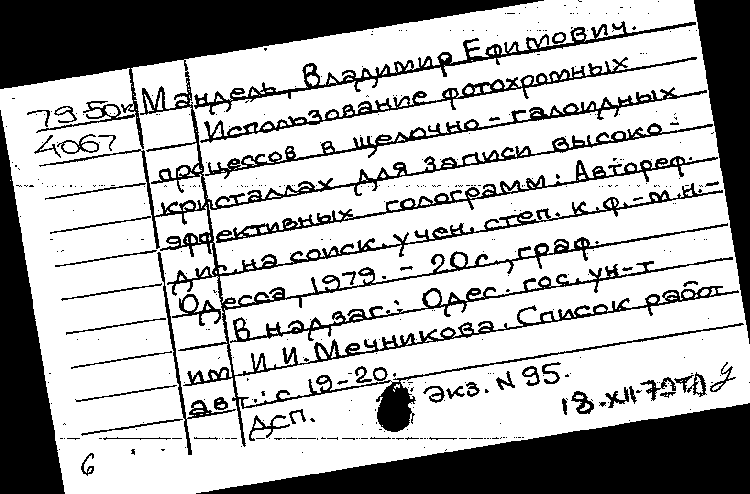 79-50к
4067
Мандель, Владимир Ефимович.
Использование фотохромных
процессов в щелочно-галоидных
кристаллах для записи высоко-
эффективных голограмм: Автореф.
дис. на соиск. учен. степ. к.ф.-м.н.-
Одесса, 1979. - 20 с., граф.
В надзаг.: Одес. гос. ун-т
им. И.И. Мечникова. Список работ
авт.: с 19-20.
ДСП.
Экз. N 95.
18.XII-79
6